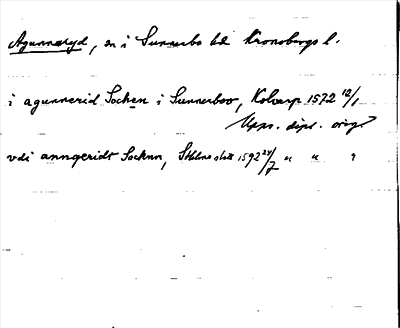 Agunnaryd, sn i Sunnerbo hd Kronobergs l.
i agunnerid Sochen i Sunnerboo, Kolverp 1572 12/1
Upps. dipl. orig.
vdi anngeridt Socknn, Sthlms slott 1592 24/7 " " "